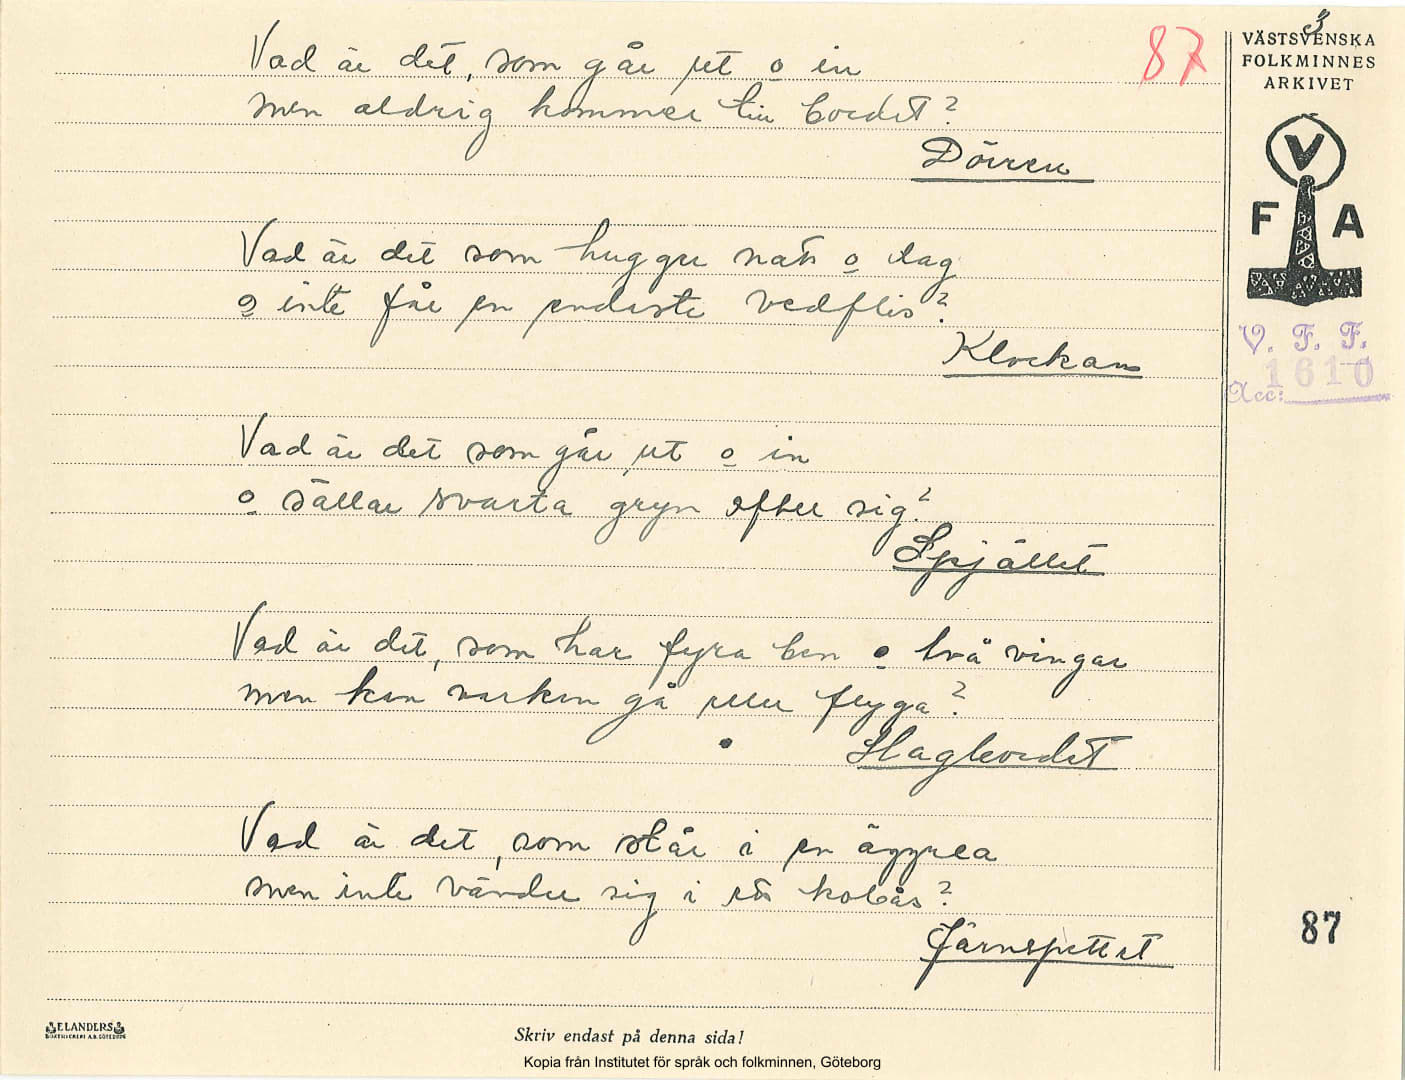 3
87
VÄSTSVENSKA
FOLKMINNES
ARKIVET
V
F A
V. F. F.
1610
Acc:
Vad är det, som går ut o in
men aldrig kommer till bordet?
Dörren
Vad är det som hugger natt o dag
o inte får en endaste vedflis?
Klockan
Vad är det som går ut o in
o sållar svarta gryn efter sig?
Spjället
Vad är det, som har fyra ben o två vingar
men kan varken gå eller flyga?
Slagbordet
Vad är det, som står i en
men inte vänder sig i
Järnspettet
87
ELANDERS
BOKTRYCKERI A.B. GÖTEBORG
Skriv endast på denna sida!
Kopia från Institutet för språk och folkminnen, Göteborg